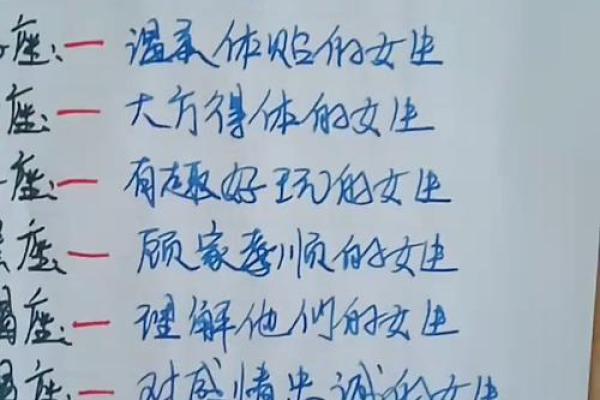 座:一 温柔体贴的女生
座:一 大方得体的女生
座:一 有趣好玩的女生
座:一 顾家孝顺的女生
座:一 理解他们的女生
座:一 对感情忠诚的女生